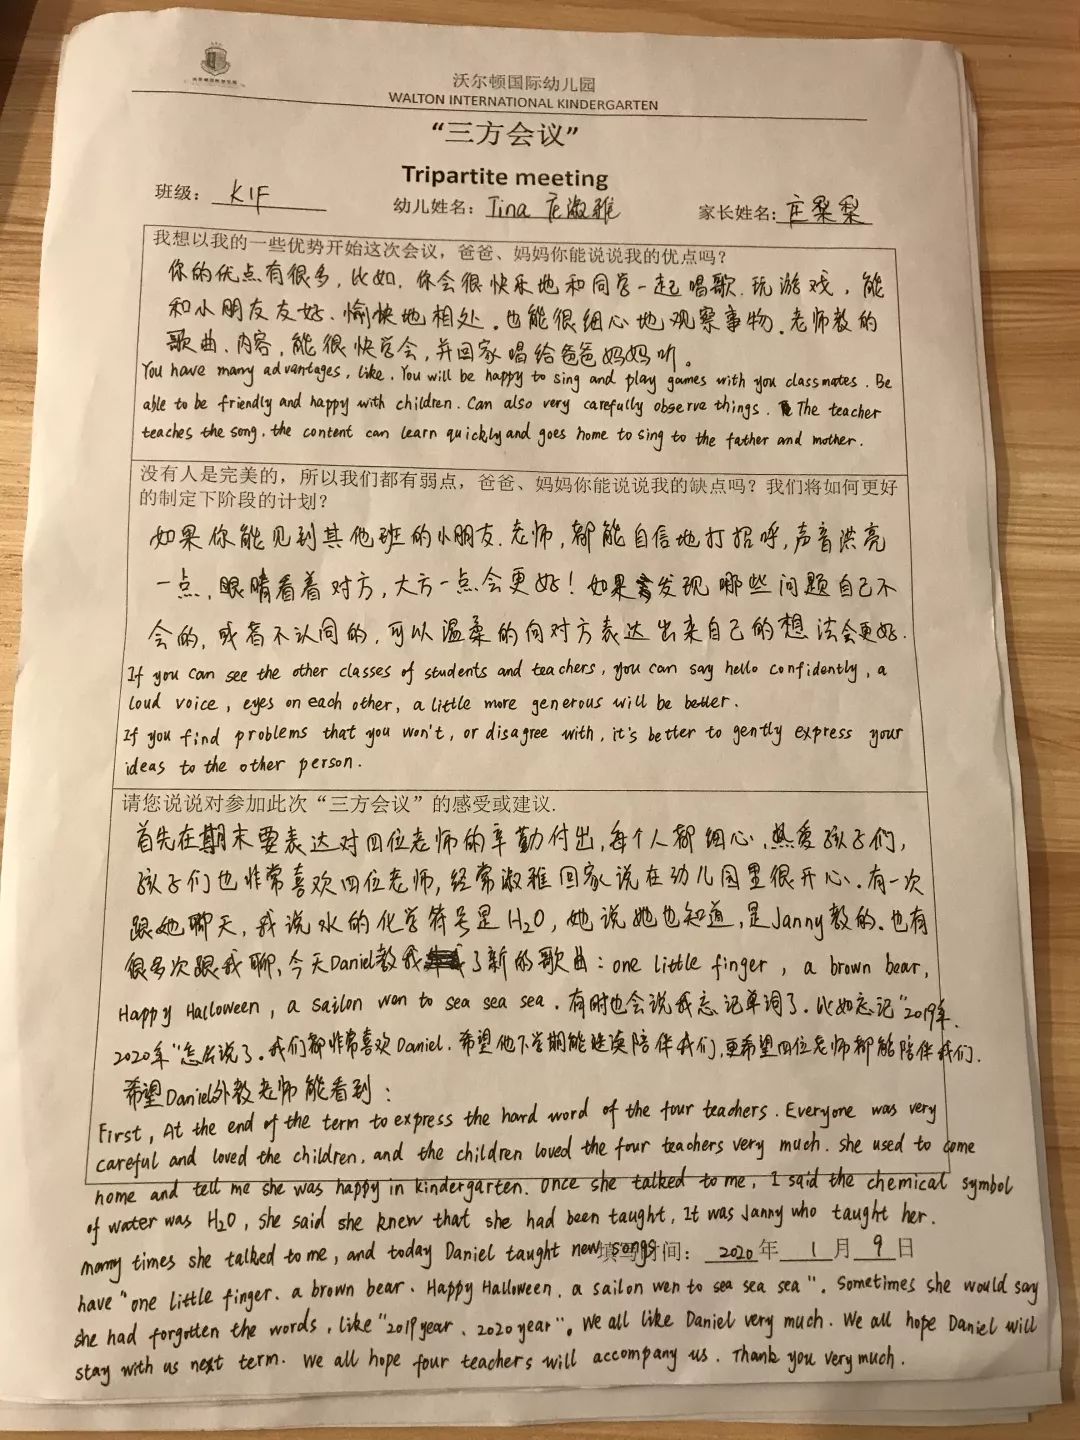 沃尔顿国际幼儿园
WALTON INTERNATIONAL KINDERGARTEN
“三方会议”
Tripartite meeting
班级: K1F 幼儿姓名: Tina 庄淑雅 家长姓名: 庄梨梨
我想以我的一些优势开始这次会议，爸爸、妈妈你能说说我的优点吗？
你的优点有很多，比如，你会很快乐地和同学一起唱歌、玩游戏，能
和小朋友友好、愉快地相处。也能很细心地观察事物。老师教的
歌曲、内容，能很快学会，并回家唱给爸爸妈妈听。
You have many advantages, like. You will be happy to sing and play games with you classmates. Be
able to be friendly and happy with children. Can also very carefully observe things. The teacher
teaches the song, the content can learn quickly and goes home to sing to the father and mother.
没有人是完美的，所以我们都有弱点，爸爸、妈妈你能说说我的缺点吗？我们将如何更好
的制定下阶段的计划？
如果你能见到其他班的小朋友、老师，都能自信地打招呼，声音洪亮
一点，眼睛看着对方，大方一点会更好！如果发现哪些问题自己不
会的，或者不认同的，可以温柔的向对方表达出来自己的想法会更好.
If you can see the other classes of students and teachers, you can say hello confidently, a
loud voice, eyes on each other, a little more generous will be better.
If you find problems that you won't, or disagree with, it's better to gently express your
ideas to the other person.
请您说说对参加此次“三方会议”的感受或建议.
首先在期末要表达对四位老师的辛勤付出，每个人都细心、热爱孩子们，
孩子们也非常喜欢四位老师，经常淑雅回家说在幼儿园里很开心。有一次
跟她聊天，我说水的化学符号是H₂O，她说她也知道，是Janny教的。也有
很多次跟我聊，今天Daniel教我了新的歌曲：one little finger, a brown bear,
Happy Halloween, a sailon won to sea sea sea. 有时也会说我忘记单词了。比如忘记“2019年、
2020年”怎么说了。我们都非常喜欢Daniel. 希望他下学期能继续陪伴我们，更希望四位老师都能陪伴我们.
希望Daniel外教老师能看到：
First, At the end of the term to express the hard word of the four teachers. Everyone was very
careful and loved the children, and the children loved the four teachers very much. She used to come
home and tell me she was happy in kindergarten. Once she talked to me, I said the chemical symbol
of water was H₂O, she said she knew that she had been taught, It was Janny who taught her.
many times she talked to me, and today Daniel taught new songs
填写时间: 2020 年 1 月 9 日
have "one little finger, a brown bear. Happy Halloween, a sailon wen to sea sea sea". Sometimes she would say
she had forgotten the words, like "2019 year、2020 year". We all like Daniel very much. We all hope Daniel will
stay with us next term. We all hope four teachers will accompany us. Thank you very much.